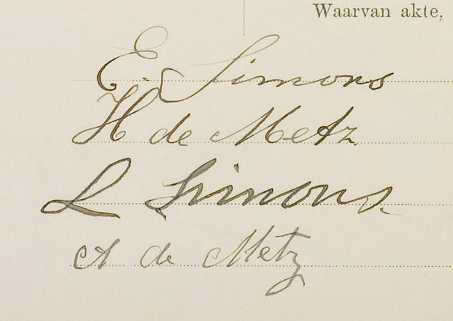 Waarvan akte,
E. Simons
H de Metz
L Simons.
A de Metz